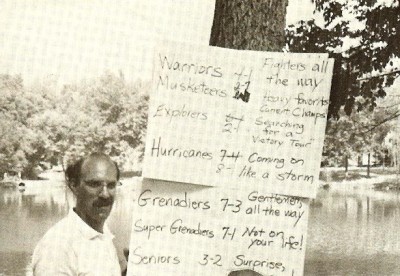 Warriors 4-1 Fighters all
the way
Musketeers Heavy favorits
Current Champs
Explorers Searching
for a
Victory Tour
Hurricanes 7-4 Coming on
8- like a storm
Grenadiers 7-3 Gentlemen
all the way
Super Grenadiers 7-1 Not on
your life!
Seniors 3-2 Surprise,